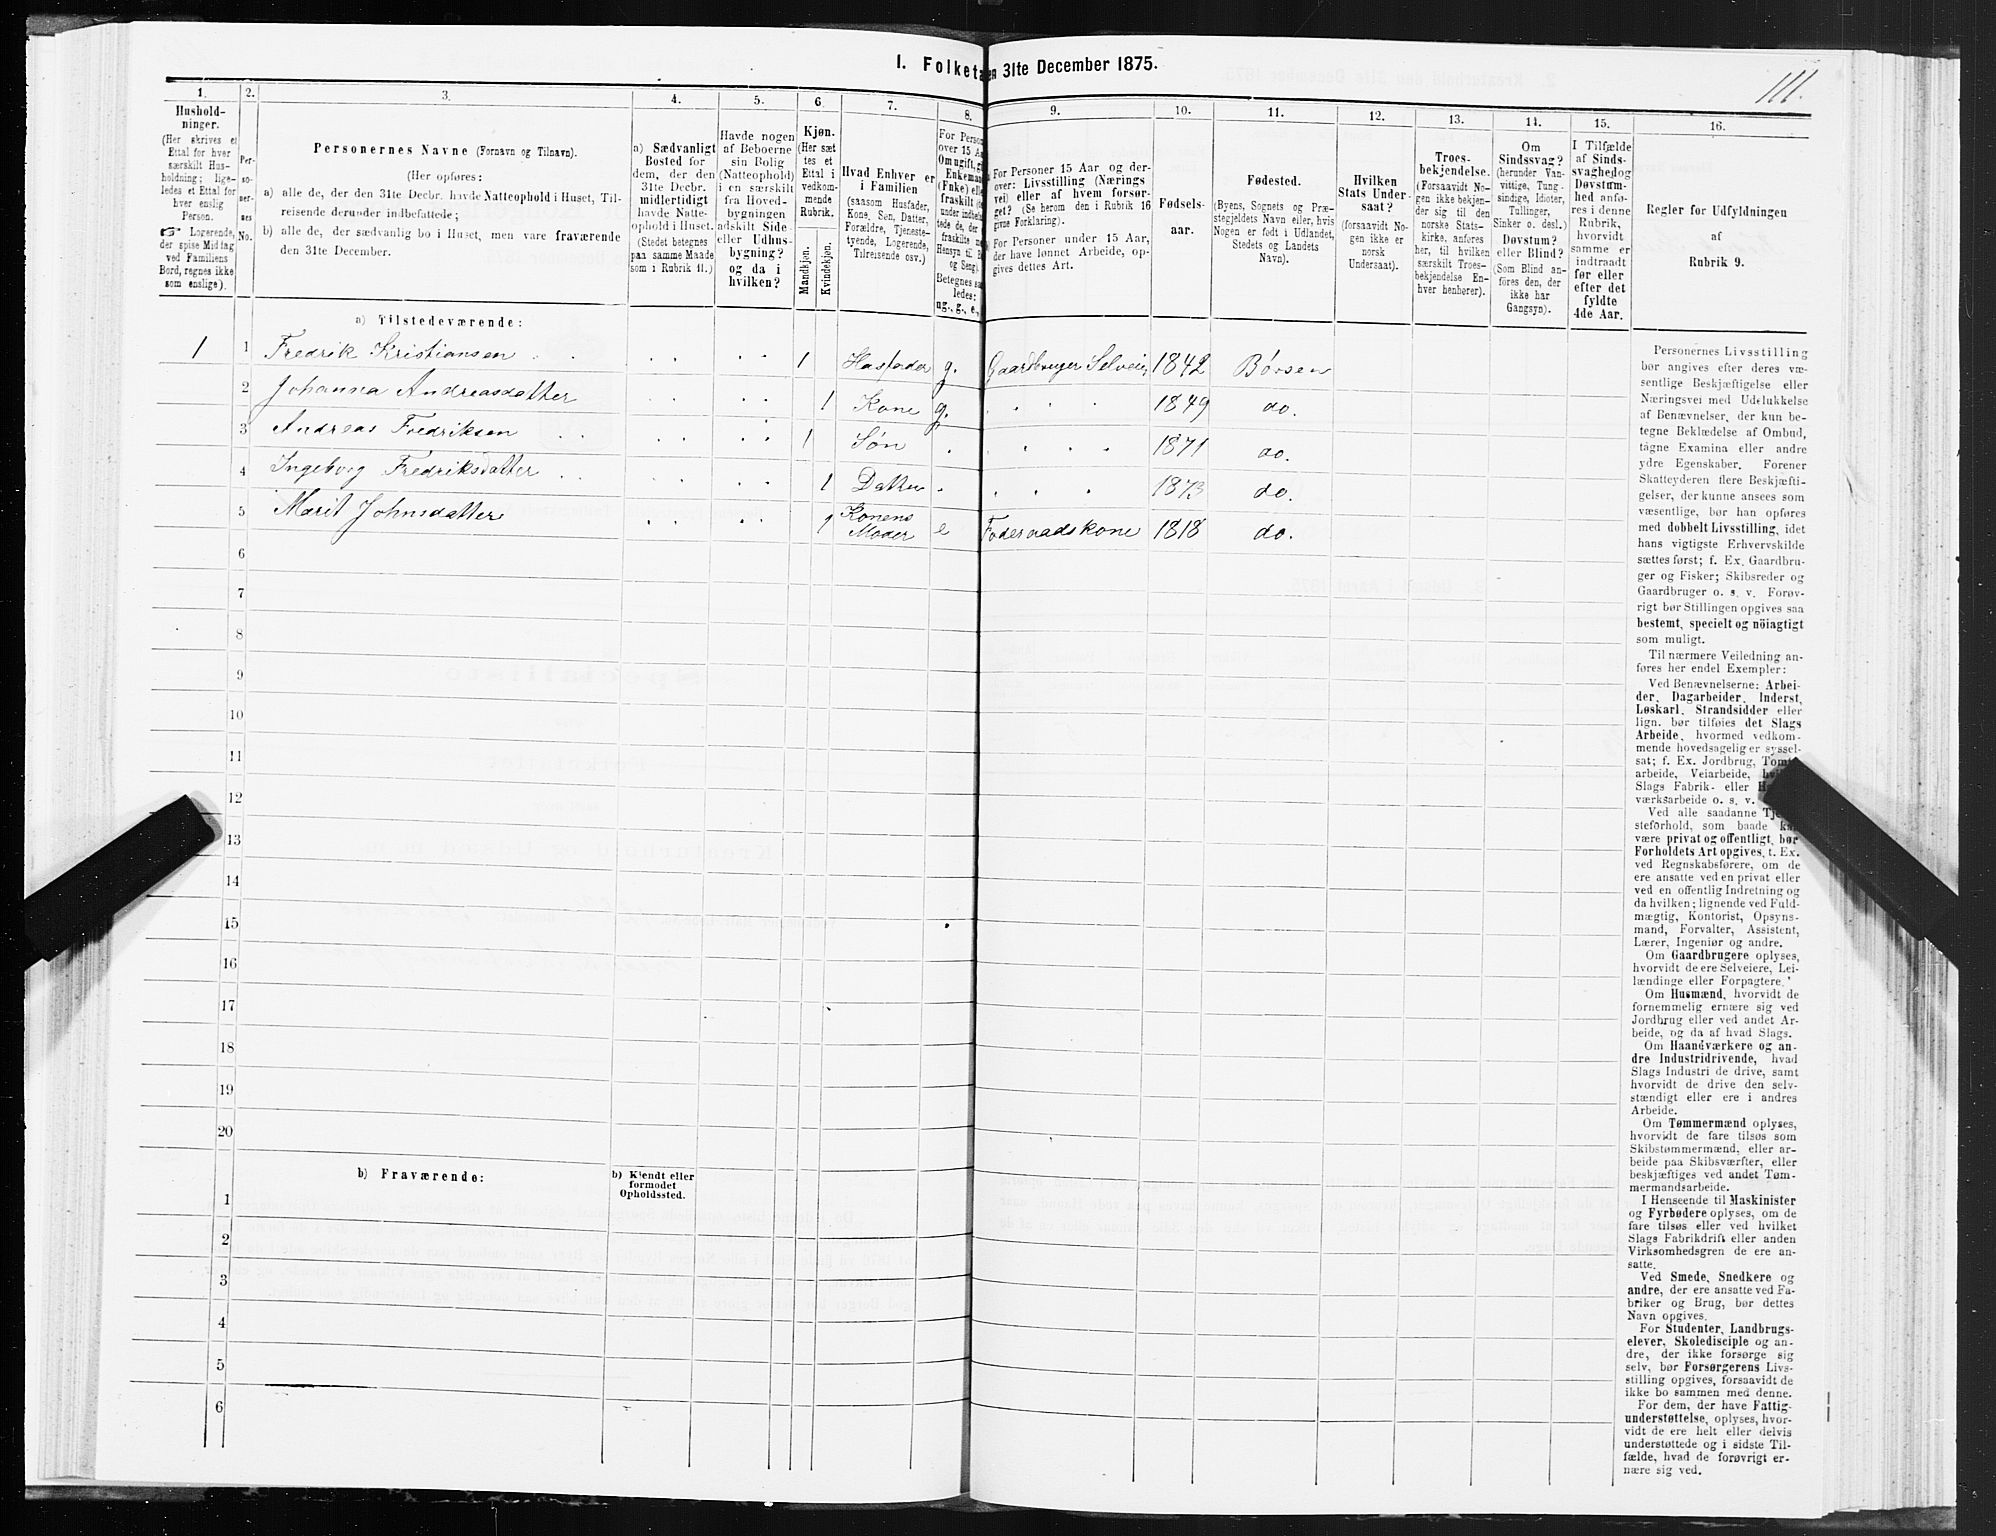 I. Folketæ
en 31te December 1875.
111.
1.
2.
3.
4.
5.
6.
7.
8.
9.
10.
11.
12.
13.
14.
15.
16.
Hushold-
ninger.
(Her skrives et
Ettal for hver
særskilt Hus-
holdning; lige-
ledes et Ettal for
hver enslig
Person.
☞ Logerende,
der spise Middag
ved Familiens
Bord, regnes ikke
som enslige).
Per-
so-
ner-
nes
No.
Personernes Navne (Fornavn og Tilnavn).
(Her opføres:
a) alle de, der den 31te Decbr. havde Natteophold i Huset, Til-
reisende derunder indbefattede;
b) alle de, der sædvanlig bo i Huset, men vare fraværende
den 31te December.
a) Sædvanligt
Bosted for
dem, der den
31te Decbr.
midlertidigt
havde Natte-
ophold i Huset.
(Stedet betegnes
paa samme Maade
som i Rubrik 11.)
Havde nogen
af Beboerne
sin Bolig
(Natteophold)
i en særskilt
fra Hoved-
bygningen
adskilt Side-
eller Udhus-
bygning?
og da i
hvilken?
Kjøn.
(Her sæt-
tes et
Ettal i
vedkom-
mende
Rubrik.
Mandkjøn.
Kvindekjøn.
Hvad Enhver er
i Familien
(saasom Husfader,
Kone, Søn, Datter,
Forældre, Tjeneste-
tyende, Logerende,
Tilreisende osv.)
For Person
over 15 Aa
Om ugift, gi
Enkemand
(Enke) elle
fraskilt
under indbe
tede de, der
fraskilte m
Hensyn til B
og Seng).
Betegnes sa
ledes:
ug., g., e.,
For Personer 15 Aar og der-
over: Livsstilling (Nærings-
vei) eller af hvem forsør-
get? (Se herom den i Rubrik 16
givne Forklaring).
For Personer under 15 Aar,
der have lønnet Arbeide, op-
gives dettes Art.
Fødsels-
aar.
Fødested.
(Byens, Sognets og Præ-
stegjeldets Navn eller, hvis
Nogen er født i Udlandet,
Stedets og Landets
Navn).
Hvilken
Stats Under-
saat?
(forsaavidt No-
gen ikke er
norsk
Undersaat).
Troes-
bekjendelse.
(Forsaavidt No-
gen ikke bekjen-
der sig til den
norske Stats-
kirke, anføres
her, til hvilken
særskilt Troes-
bekjendelse En-
hver henhører).
Om
Sindssvag?
(herunder Van-
vittige, Tung-
sindige, Idioter,
Tullinger,
Sinker o. desl.)
Døvstum?
eller Blind?
(Som Blind an-
føres den, der
ikke har
Gangsyn).
I Tilfælde
af Sinds-
svaghed og
Døvstum-
hed anfø-
res i denne
Rubrik,
hvorvidt
samme er
indtraadt
før eller
efter det
fyldte
4de Aar.
Regler for Udfyldningen
af
Rubrik 9.
a) Tilstedeværende:
1 1 Fredrik Kristiansen 1 Husfader g. Gaardbruger Selveier 1842 Børsen
2 Johanna Andreasdatter 1 Kone g. 1849 do.
3 Andreas Fredriksen 1 Søn 1871 do.
4 Ingeborg Fredriksdatter 1 Datter 1873 do.
5 Marit Johnsdatter 1 Konens Moder e Foderaadskone 1818 do.
6
7
8
9
10
11
12
13
14
15
16
17
18
19
20
b) Fraværende:
b) Kjendt eller
formodet
Opholdssted.
1
2
3
4
5
6
Personernes Livsstilling
bør angives efter deres væ-
sentlige Beskjæftigelse eller
Næringsvei med Udelukkelse
af Benævnelser, der kun be-
tegne Beklædelse af Ombud,
tagne Examina eller andre
ydre Egenskaber. Forener
Skatteyderen flere Beskjæfti-
gelser, der kunne ansees som
væsentlige, bør han opføres
med dobbelt Livsstilling, idet
hans vigtigste Erhvervskilde
sættes først; f. Ex. Gaardbru-
ger og Fisker; Skibsreder og
Gaardbruger o. s. v. Forøv-
rigt bør Stillingen opgives saa
bestemt, specielt og nöiagtigt
som muligt.
Til nærmere Veiledning an-
føres her endel Exempler:
Ved Benævnelserne: Arbei-
der, Dagarbeider, Inderst,
Løskarl, Strandsidder eller
lign. bør tilføies det Slags
Arbeide, hvormed vedkom-
mende hovedsagelig er syssel-
sat; f. Ex. Jordbrug, Tomt-
arbeide, Veiarbeide,
Slags Fabrik- eller
værksarbeide o. s. v.
Ved alle saadanne
steforhold, som baade
være privat og offentligt, bør
Forholdets Art opgives, t. Ex.
ved Regnskabsførere, om de
ere ansatte ved en privat eller
ved en offentlig Indretning og
da hvilken; lignende ved Fuld-
mægtig, Kontorist, Opsyns-
mand, Forvalter, Assistent,
Lærer, Ingeniør og andre.
Om Gaardbrugere oplyses,
hvorvidt de ere Selveiere, Lei-
lændinge eller Forpagtere.
Om Husmænd, hvorvidt de
fornemmelig ernære sig ved
Jordbrug eller ved andet Ar-
beide, og da af hvad Slags.
Om Haandværkere og an-
dre Industridrivende, hvad
Slags Industri de drive, samt
hvorvidt de drive den selv-
stændigt eller ere i andres
Arbeide.
Om Tømmermænd oplyses,
hvorvidt de fare tilsøs som
Skibstømmermænd, eller ar-
beide paa Skibsværfter, eller
beskjæftiges ved andet Tøm-
mermandsarbeide.
I Henseende til Maskinister
og Fyrbødere oplyses, om de
fare tilsøs eller ved hvilket
Slags Fabrikdrift eller anden
Virksomhedsgren de ere an-
satte.
Ved Smede, Snedkere og
andre, der ere ansatte ved Fa-
briker og Brug, bør dettes
Navn opgives.
For Studenter, Landbrugs-
elever, Skoledisciple og an-
dre, der ikke forsørge sig
selv, bør Forsørgerens Livs-
stilling opgives, forsaavidt de
ikke bo sammen med denne.
For dem, der have Fattig-
understøttelse, oplyses, hvor-
vidt de ere helt eller delvis
understøttede og i sidste Til-
fælde, hvad de forøvrigt er-
nære sig ved.